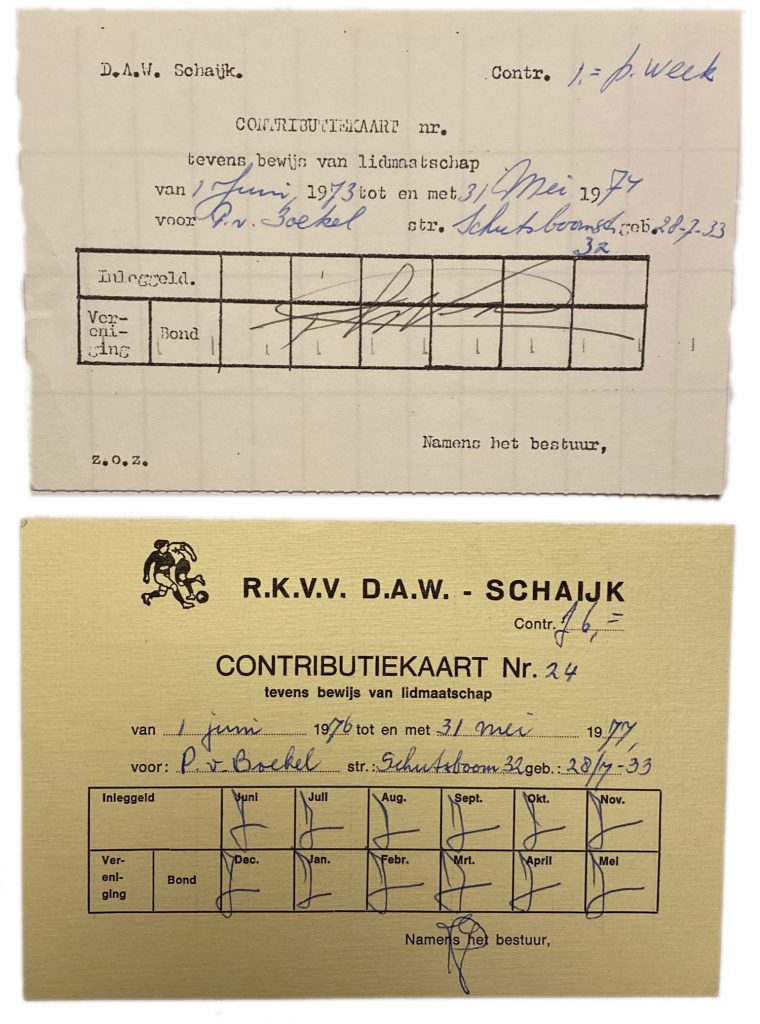 D.A.W. Schaijk. Contr. 1,= p. week
CONTRIBUTIEKAART nr.
tevens bewijs van lidmaatschap
van 1 Juni, 1973 tot en met 31 Mei 1974
voor P. v. Boekel str. Schutsboomst geb. 28-7-33
32
Inleggeld.
Ver-
eni-
ging Bond
Namens het bestuur,
z.o.z.
R.K.V.V. D.A.W. - SCHAIJK
Contr. f 6,=
CONTRIBUTIEKAART Nr. 24
tevens bewijs van lidmaatschap
van 1 juni 1976 tot en met 31 mei 1977,
voor: P. v. Boekel str.: Schutsboom 32 geb.: 28/7-33
Inleggeld Juni Juli Aug. Sept. Okt. Nov.
Ver-
eni-
ging Bond Dec. Jan. Febr. Mrt. April Mei
Namens het bestuur,